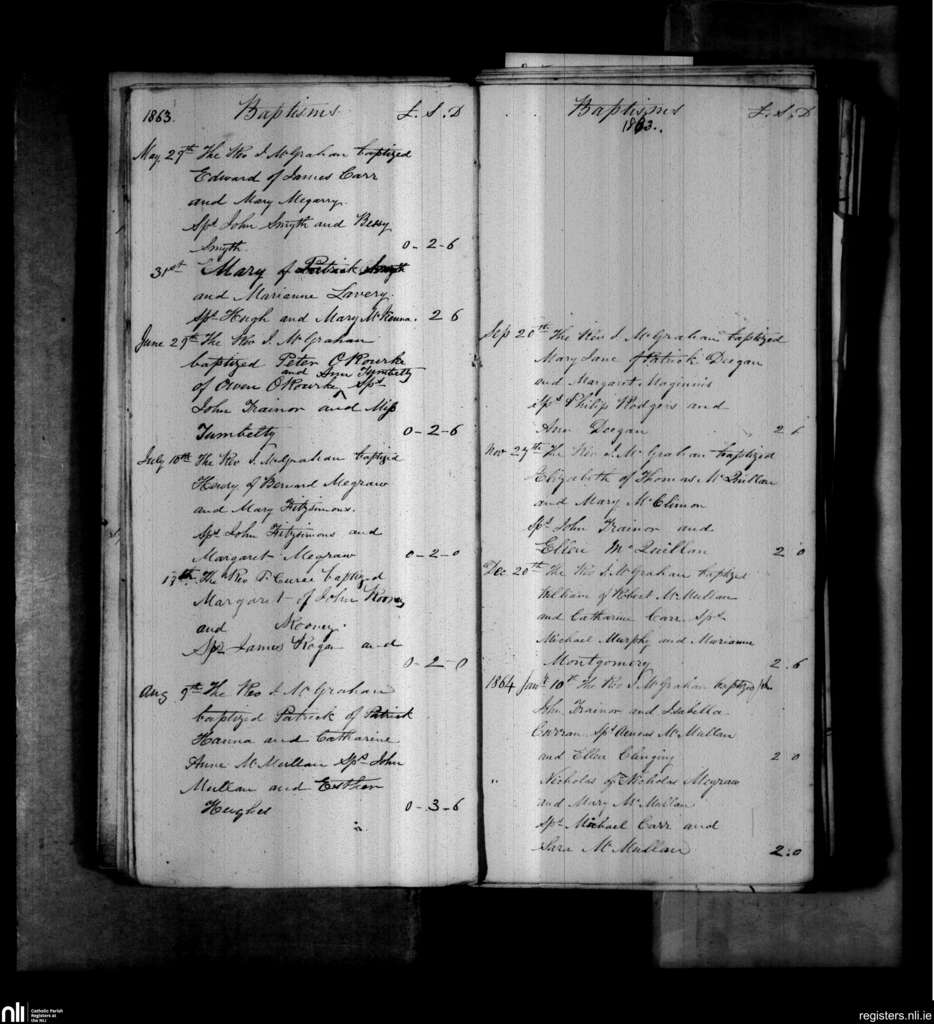 1863. Baptisms £. S. D
May 29th The Rev J. McGrahan baptized
Edward of James Carr
and Mary Megarry.
Sps John Smyth and Bessy
Smyth. 0-2-6
31st Mary of Patrick Smyth
and Marianne Lavery.
Sps Hugh and Mary McKenna. 2 6
June 29th The Rev J. McGrahan
baptized Peter O'Rourke
of Owen O'Rourke and Ann Tumbelty Sps
John Trainor and Miss
Tumbelty 0-2-6
July 10th The Rev J. McGrahan baptized
of Bernard Megraw
and Mary Fitzsimons.
Sps John Fitzsimons and
Margaret Megraw 0-2-0
The Rev P. baptized
Margaret of John Rooney
and Rooney.
Sps James Rogan and
0-2-0
Aug 9th The Rev J. McGrahan
baptized Patrick of Patrick
Hanna and Catharine
Anne McMullan Sps John
Mullan and Esther
Hughes 0-3-6
Baptisms £. S. D
1863..
Sep 20th The Rev J. McGrahan baptized
Mary Jane of Patrick Deegan
and Margaret Maginnis
Sps Philip Rodgers and
Ann Deegan 2 6
Nov 29th The Rev J. McGrahan baptized
Elizabeth of Thomas McQuillan
and Mary McClimon
Sps John Trainor and
Ellen McQuillan 2 0
Dec 20th The Rev J. McGrahan baptized
William of Robert McMullan
and Catharine Carr Sps
Michael Murphy and Marianne
Montgomery 2.6
1864 Jany 10th The Rev J. McGrahan baptized
John Trainor and Isabella
Curran Sps McMullan
and Ellen Clinging 2 0
" Nicholas of Nicholas Megraw
and Mary McMullan
Sps Michael Carr and
Sara McMullan 2.0
nli
Catholic Parish
Registers at
the NLI
registers.nli.ie